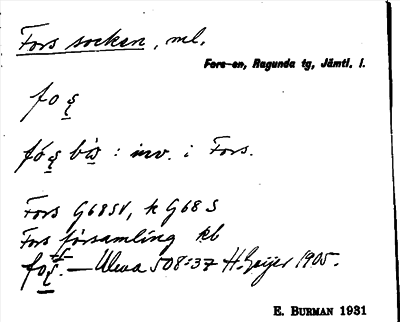 Fors socken, ml.
Fors-en, Ragunda tg, Jämtl. l.
fos
fós bis : inv. i Fors.
Fors G68SV, k G68 S
Fors församling kb
fos. — Uleva 508:37 H. Geijer 1905.
E. BURMAN 1931